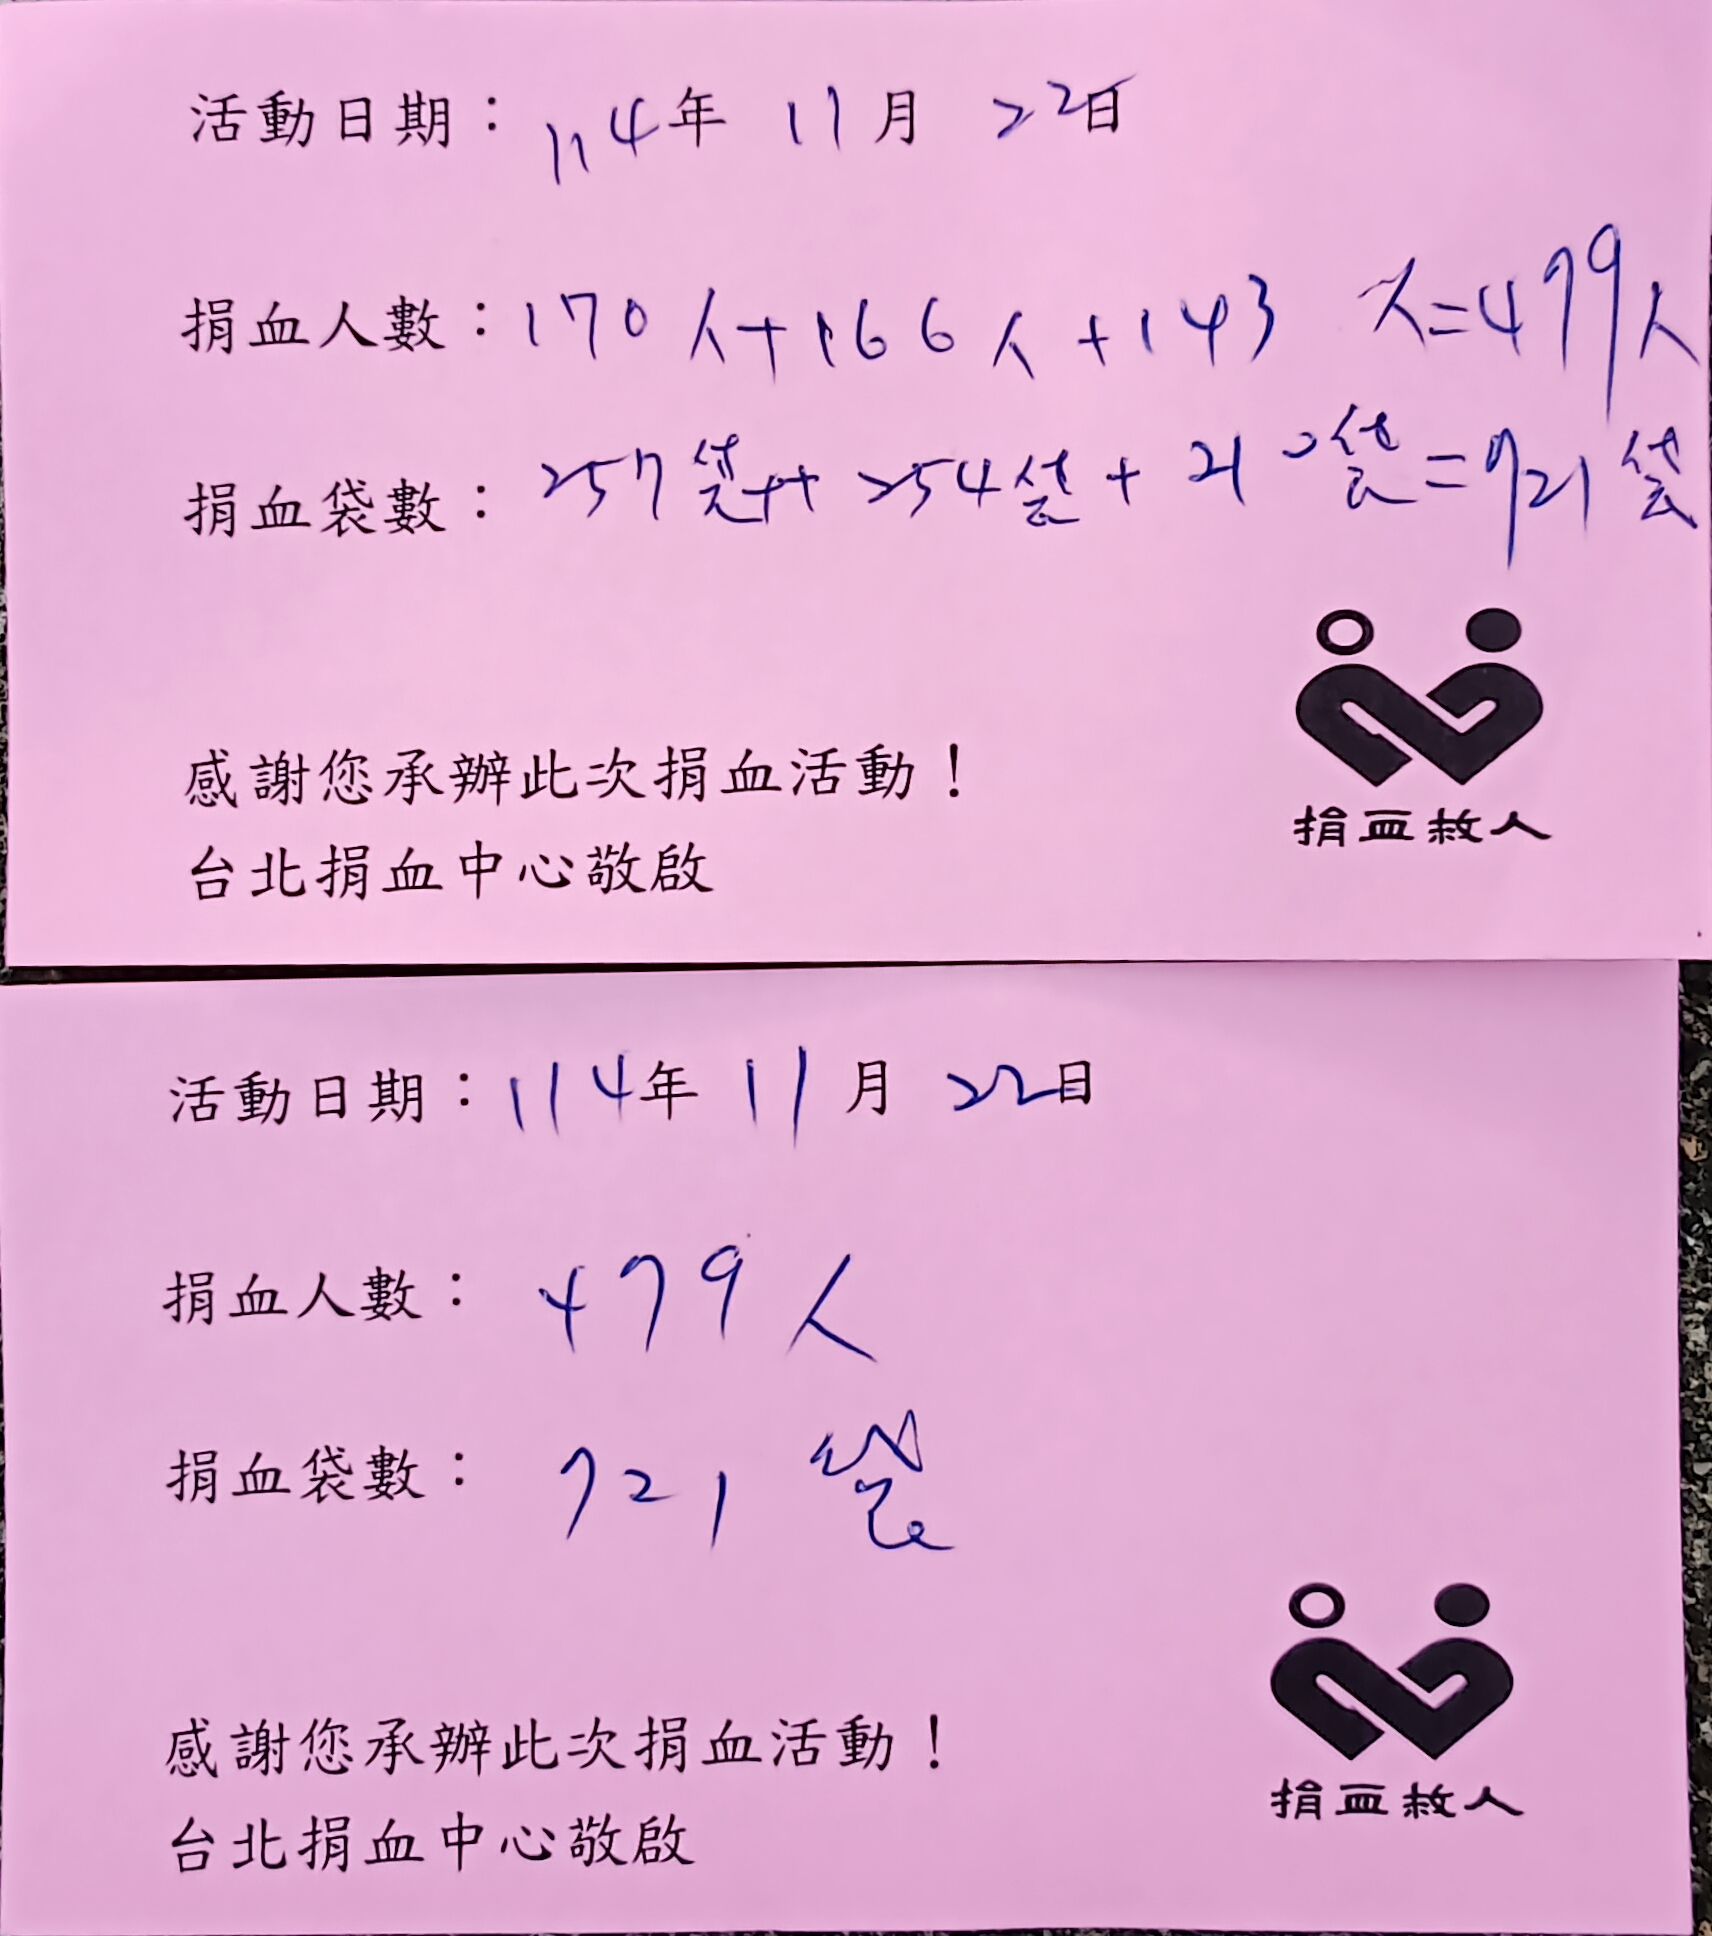 活動日期：114年 11月 22日
捐血人數：170人+166人+143 人=479人
捐血袋數：257袋++254袋+210袋=721袋
感謝您承辦此次捐血活動！
台北捐血中心敬啟
捐血救人
活動日期：114年 11月 22日
捐血人數：479人
捐血袋數：721袋
感謝您承辦此次捐血活動！
台北捐血中心敬啟
捐血救人